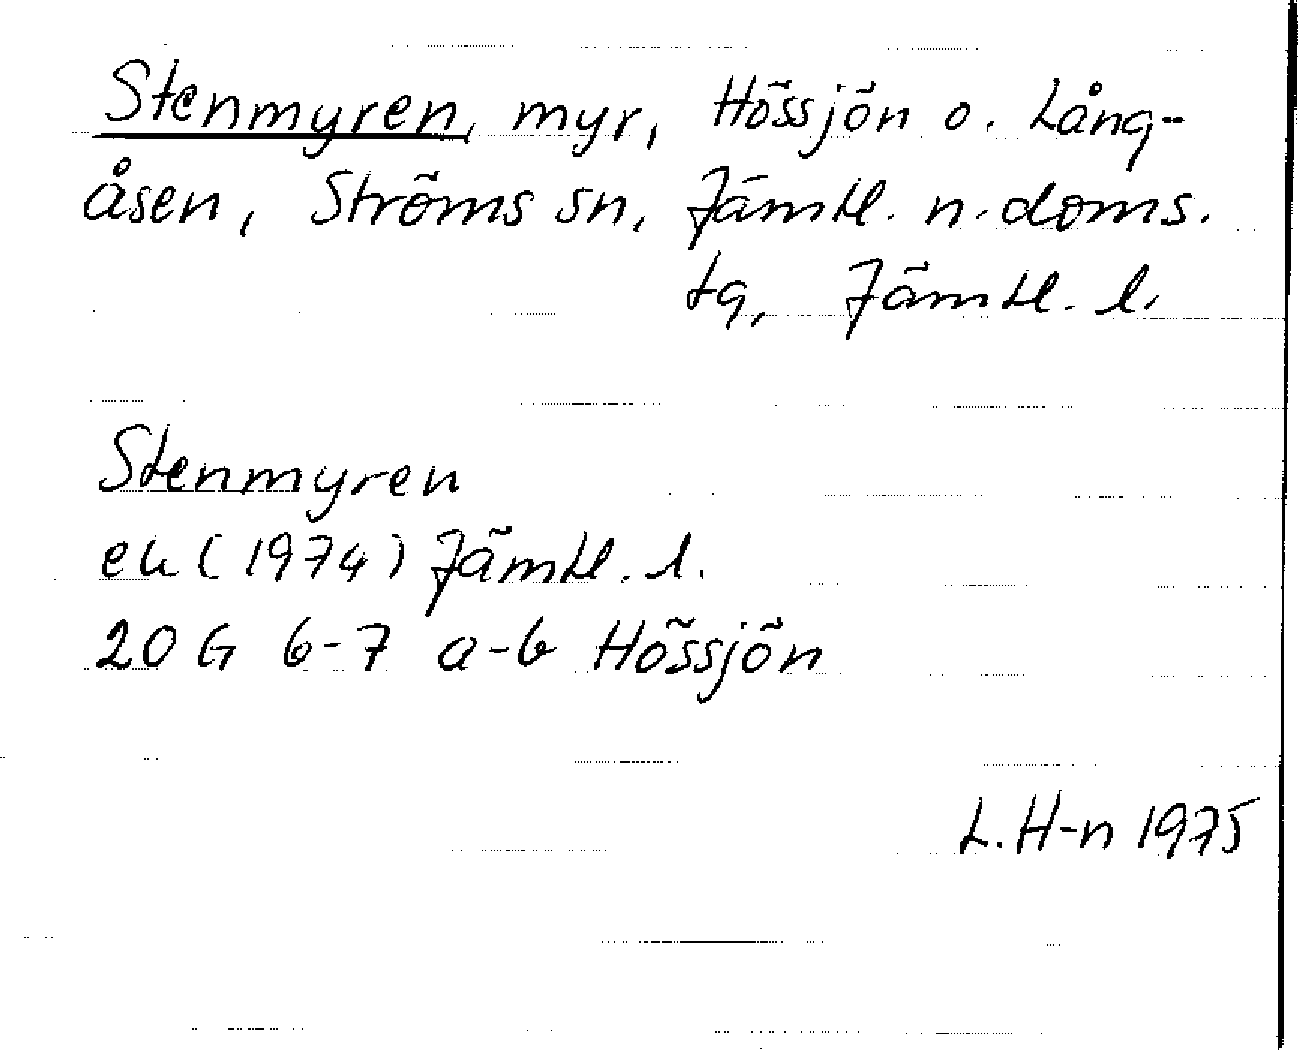 Stenmyren, myr, Hössjön o. Lång-
åsen, Ströms sn, Jämtl. n. doms.
tg, Jämtl. l.
Stenmyren
ek (1974) Jämtl. l.
20 G 6-7 a-b Hössjön
L. H-n 1975